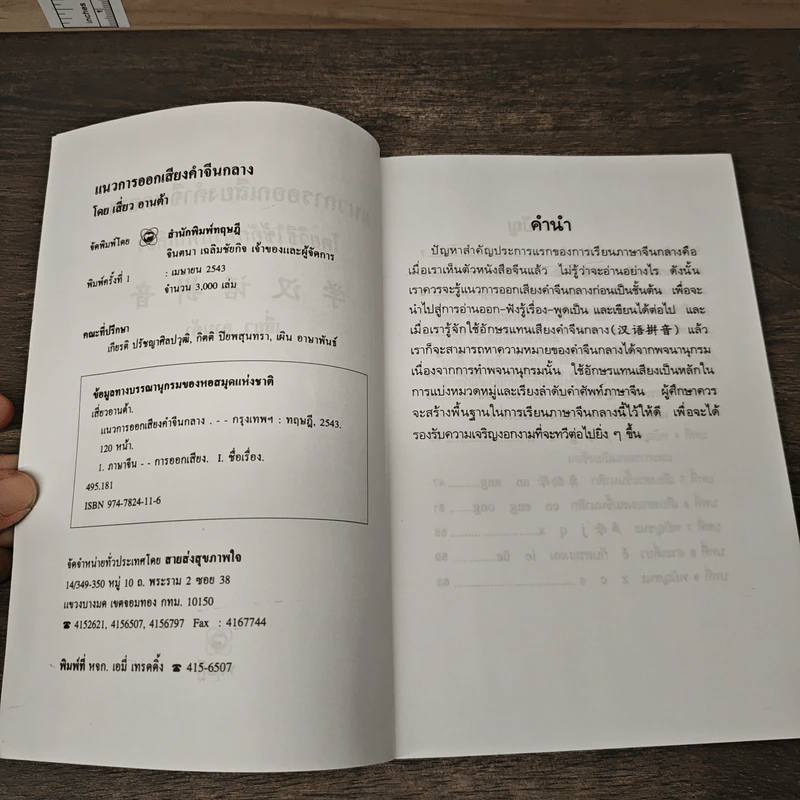 แนวการออกเสียงคำจีนกลาง
โดย เสี่ยว อานต้า
จัดพิมพ์โดย สำนักพิมพ์ทฤษฎี
จินตนา เฉลิมชัยกิจ เจ้าของและผู้จัดการ
พิมพ์ครั้งที่ 1 : เมษายน 2543
จำนวน 3,000 เล่ม
คณะที่ปรึกษา
เกียรติ ปรัชญาศิลปวุฒิ, กิตติ ปิยพสุนทรา, เผิน อาษาพันธ์
ข้อมูลทางบรรณานุกรมของหอสมุดแห่งชาติ
เสี่ยวอานต้า.
แนวการออกเสียงคำจีนกลาง . - - กรุงเทพฯ : ทฤษฎี, 2543.
120 หน้า.
1. ภาษาจีน - - การออกเสียง. I. ชื่อเรื่อง.
495.181
ISBN 974-7824-11-6
จัดจำหน่ายทั่วประเทศโดย สายส่งสุขภาพใจ
14/349-350 หมู่ 10 ถ. พระราม 2 ซอย 38
แขวงบางมด เขตจอมทอง กทม. 10150
☎ 4152621, 4156507, 4156797 Fax : 4167744
พิมพ์ที่ หจก. เอมี่ เทรดดิ้ง ☎ 415-6507
คำนำ
ปัญหาสำคัญประการแรกของการเรียนภาษาจีนกลางคือ
เมื่อเราเห็นตัวหนังสือจีนแล้ว ไม่รู้ว่าจะอ่านอย่างไร ดังนั้น
เราควรจะรู้แนวการออกเสียงคำจีนกลางก่อนเป็นชั้นต้น เพื่อจะ
นำไปสู่การอ่านออก-ฟังรู้เรื่อง-พูดเป็น และเขียนได้ต่อไป และ
เมื่อเรารู้จักใช้อักษรแทนเสียงคำจีนกลาง(汉语拼音) แล้ว
เราก็จะสามารถหาความหมายของคำจีนกลางได้จากพจนานุกรม
เนื่องจากการทำพจนานุกรมนั้น ใช้อักษรแทนเสียงเป็นหลักใน
การแบ่งหมวดหมู่และเรียงลำดับคำศัพท์ภาษาจีน ผู้ศึกษาควร
จะสร้างพื้นฐานในการเรียนภาษาจีนกลางนี้ไว้ให้ดี เพื่อจะได้
รองรับความเจริญงอกงามที่จะทวีต่อไปยิ่ง ๆ ขึ้น